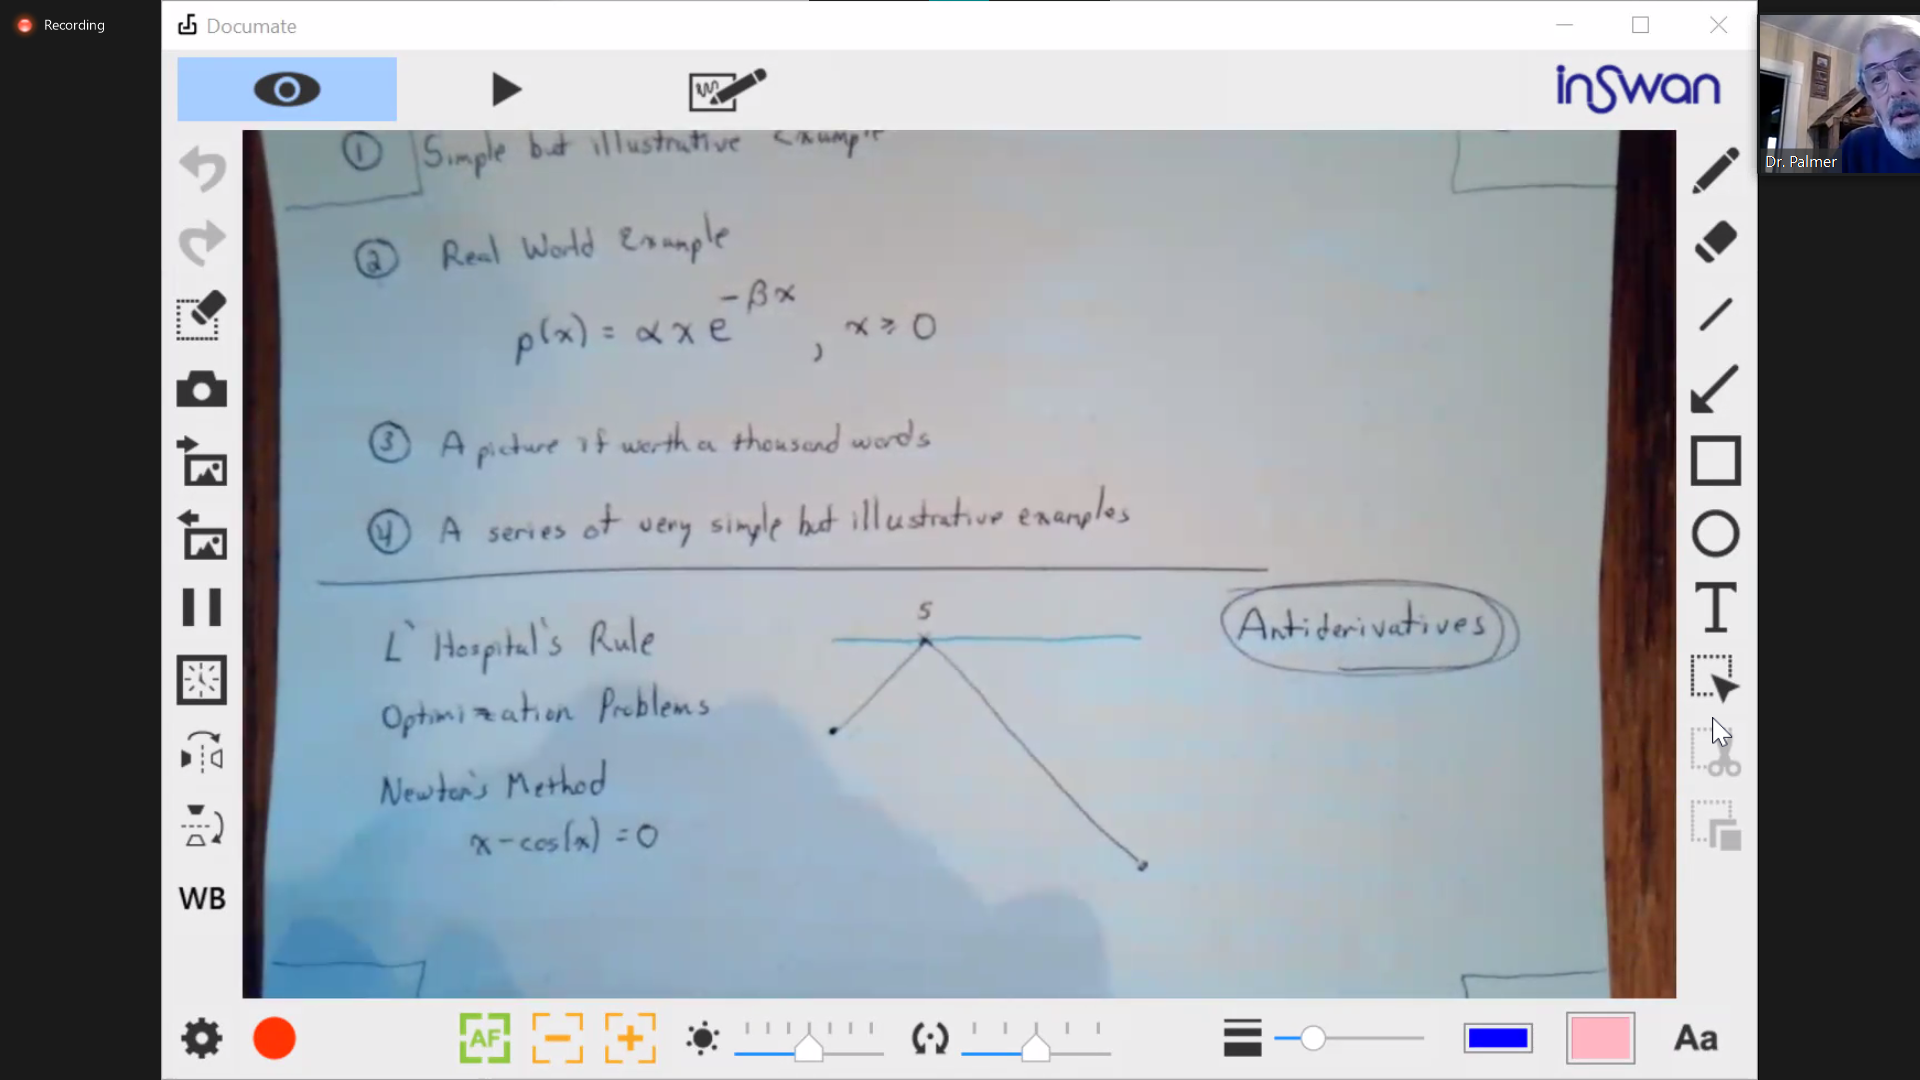 Recording
Documate
inSwan
Dr. Palmer
① Simple but illustrative Example
② Real World Example
p(x) = αx e^{-βx}, x ≥ 0
③ A picture if worth a thousand words
④ A series of very simple but illustrative examples
L'Hospital's Rule
S
Antiderivatives
Optimization Problems
Newton's Method
x-cos(x) = 0
T
WB
AF
Aa